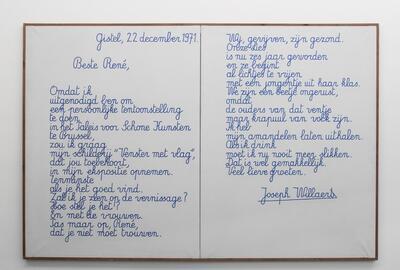 Gistel, 22 december 1971.
Beste René,
Omdat ik
uitgenodigd ben om
een persoonlijke tentoonstelling
te doen
in het Paleis voor Schone Kunsten
te Brussel,
zou ik graag
mijn schilderij "Venster met vlag",
dat jou toebehoort,
in mijn ekspositie opnemen.
Tenminste
als je het goed vind.
Zal ik je zien op de vernissage?
Hoe stel je het?
En met de vrouwen.
Pas maar op, René,
dat je niet moet trouwen.
Wij, gevijven, zijn gezond.
Onze
is nu zes jaar geworden
en ze begint
al lichtjes te vrijen
met een jongentje uit haar klas.
We zijn een beetje ongerust,
omdat
de ouders van dat ventje
maar krapuul van volk zijn.
Ik heb
mijn amandelen laten uithalen.
Als ik drink
moet ik nu nooit meer slikken.
Dat is wel gemakkelijk.
Veel lieve groeten.
Joseph Willaert.